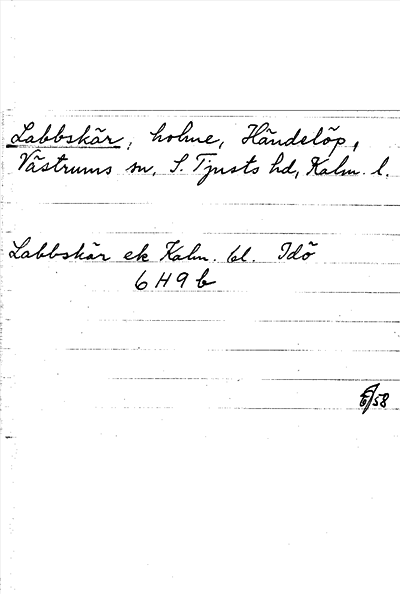 Labbskär, holme, Händelöp,
Västrums sn, S. Tjusts hd, Kalm. l.
Labbskär ek Kalm. bl. Idö
6 H 9 b
/58